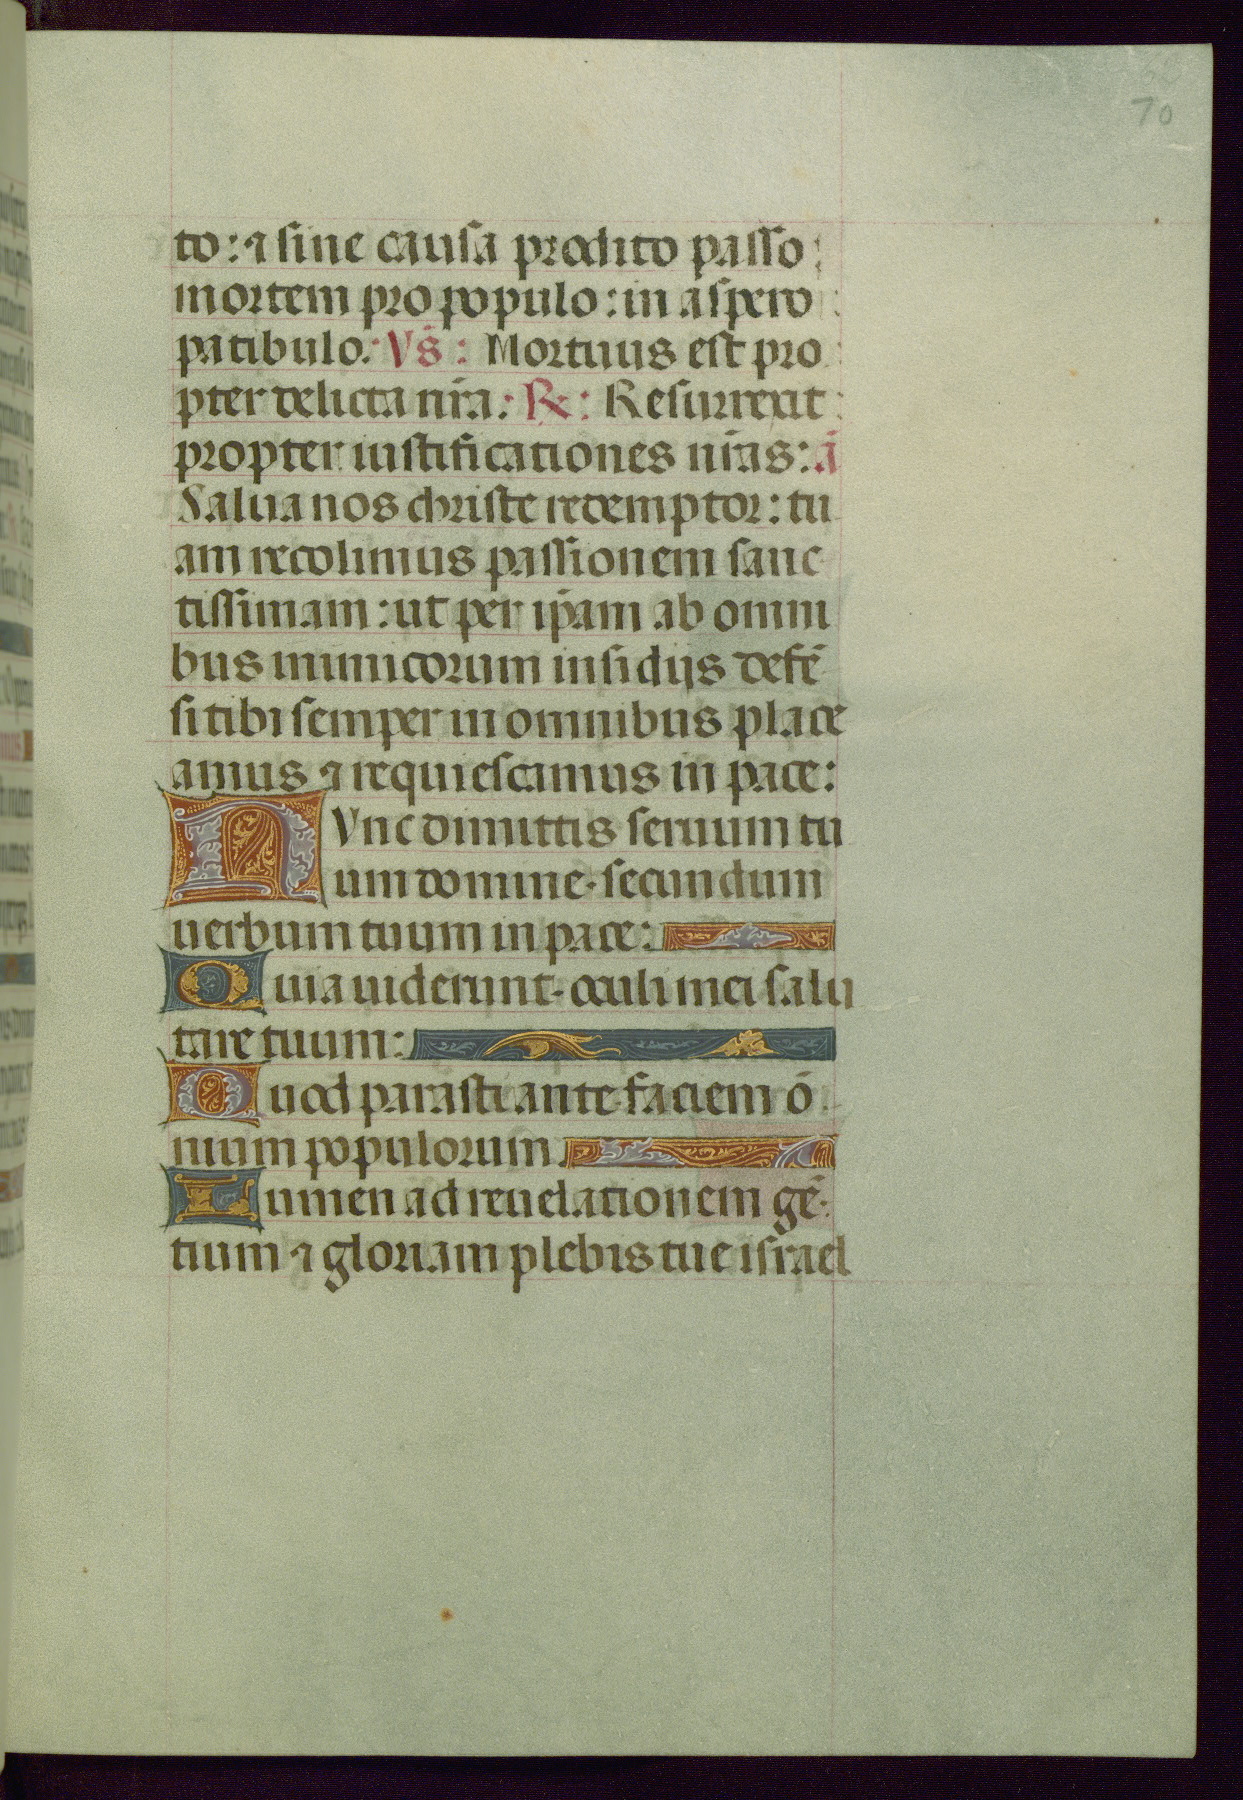 70
to: ⁊ sine causa prodito passo
mortem pro populo: in aspero
patibulo. Vs̄: Mortuus est pro
pter delicta nr̄a. ℟: Resurrexit
propter iustificationes nr̄as: ā
Salua nos christe redemptor: tu
am recolimus passionem sanc
tissimam: ut per ip̄am ab omni
bus inimicorum insidijs defē
si tibi semper in omnibus place
amus ⁊ requiescamus in pace:
NVnc dimittis seruum tu
um domine. secundum
uerbum tuum in pace:
Quia uiderunt. oculi mei salu
tare tuum:
Quod parasti ante faciem ō
nium populorum.
Lumen ad reuelationem gē
tium ⁊ gloriam plebis tue israel